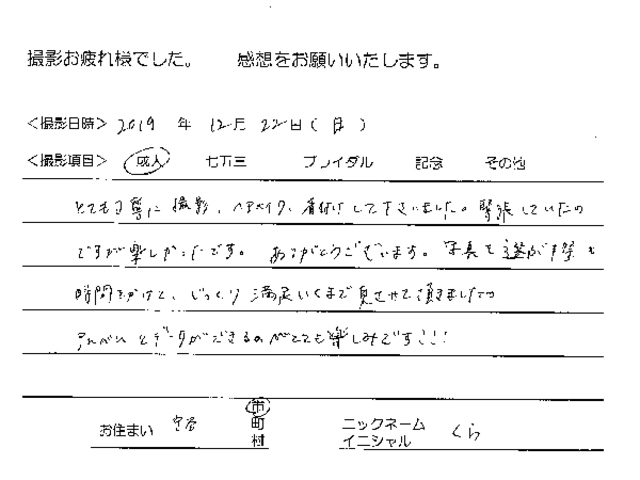 撮影お疲れ様でした。 感想をお願いいたします。
<撮影日時> 2019 年 12月 22日(日)
<撮影項目> 成人 七五三 ブライダル 記念 その他
とても丁寧に撮影、ヘアメイク、着付けして下さいました。緊張していたの
ですが楽しかったです。ありがとうございます。写真を選ぶ際も
時間をかけて、じっくり満足いくまで見させて頂きました。
アルバムとデータができるのがとても楽しみです
お住まい 市
町
村
ニックネーム くら
イニシャル